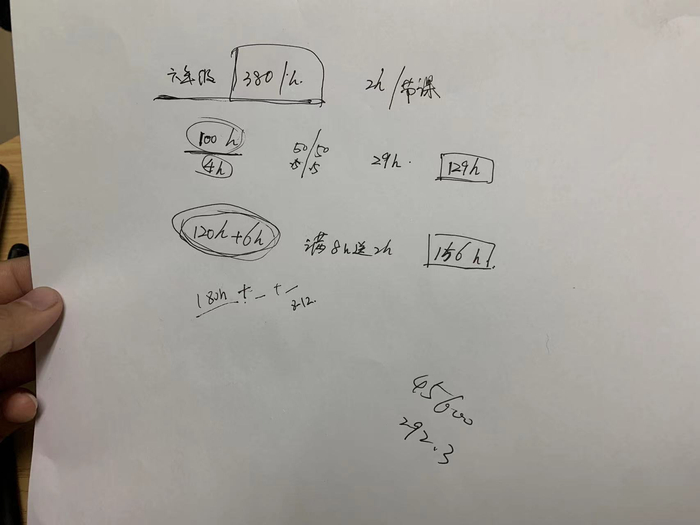 六年级 380/h. 2h/节课
100h 50/50 29h. 129h
4h .5/.5
120h+6h 满8h送2h 156h
180h + - + -
212.
45600
292.3